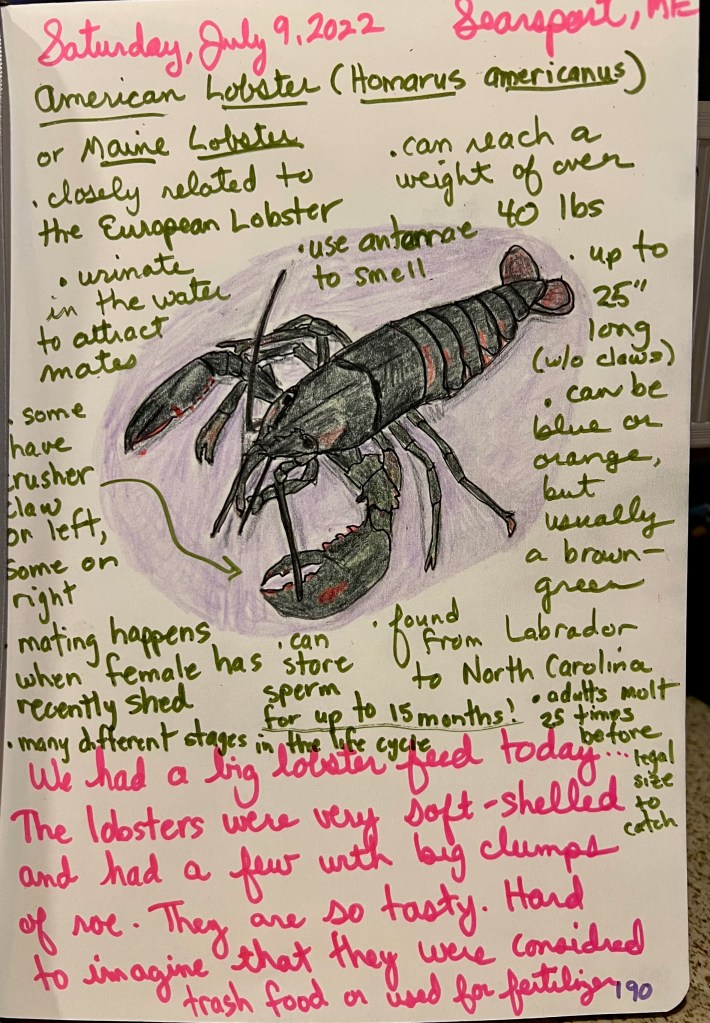 Saturday, July 9, 2022
Searsport, ME
American Lobster (Homarus americanus)
or Maine Lobster
· closely related to
the European Lobster
· can reach a
weight of over
40 lbs
· urinate
in the water
to attract
mates
· use antannae
to smell
· up to
25"
long
(w/o claws)
· can be
blue or
orange,
but
usually
a brown-
green
· some
have
crusher
claw
on left,
some on
right
mating happens
when female has
recently shed
· can
store
sperm
for up to 15 months!
· found
from Labrador
to North Carolina
· adults molt
25 times
before
legal
size
to
catch
· many different stages in the life cycle
We had a big lobster feed today...
The lobsters were very soft-shelled
and had a few with big clumps
of roe. They are so tasty. Hard
to imagine that they were considred
trash food or used for fertilizer
190